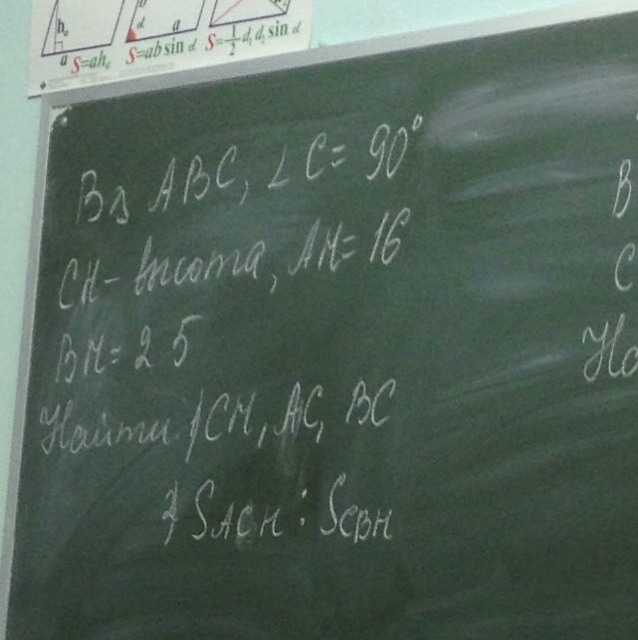 hₐ
a
S=ahₐ
b
d
a
S=ab sin d
S=½d₁d₂ sin d
В △ ABC, ∠C=90°
CH- высота, AH=16
BH=25
Найти 1) CH, AC, BC
2) SACH : SCBH
В
С
На